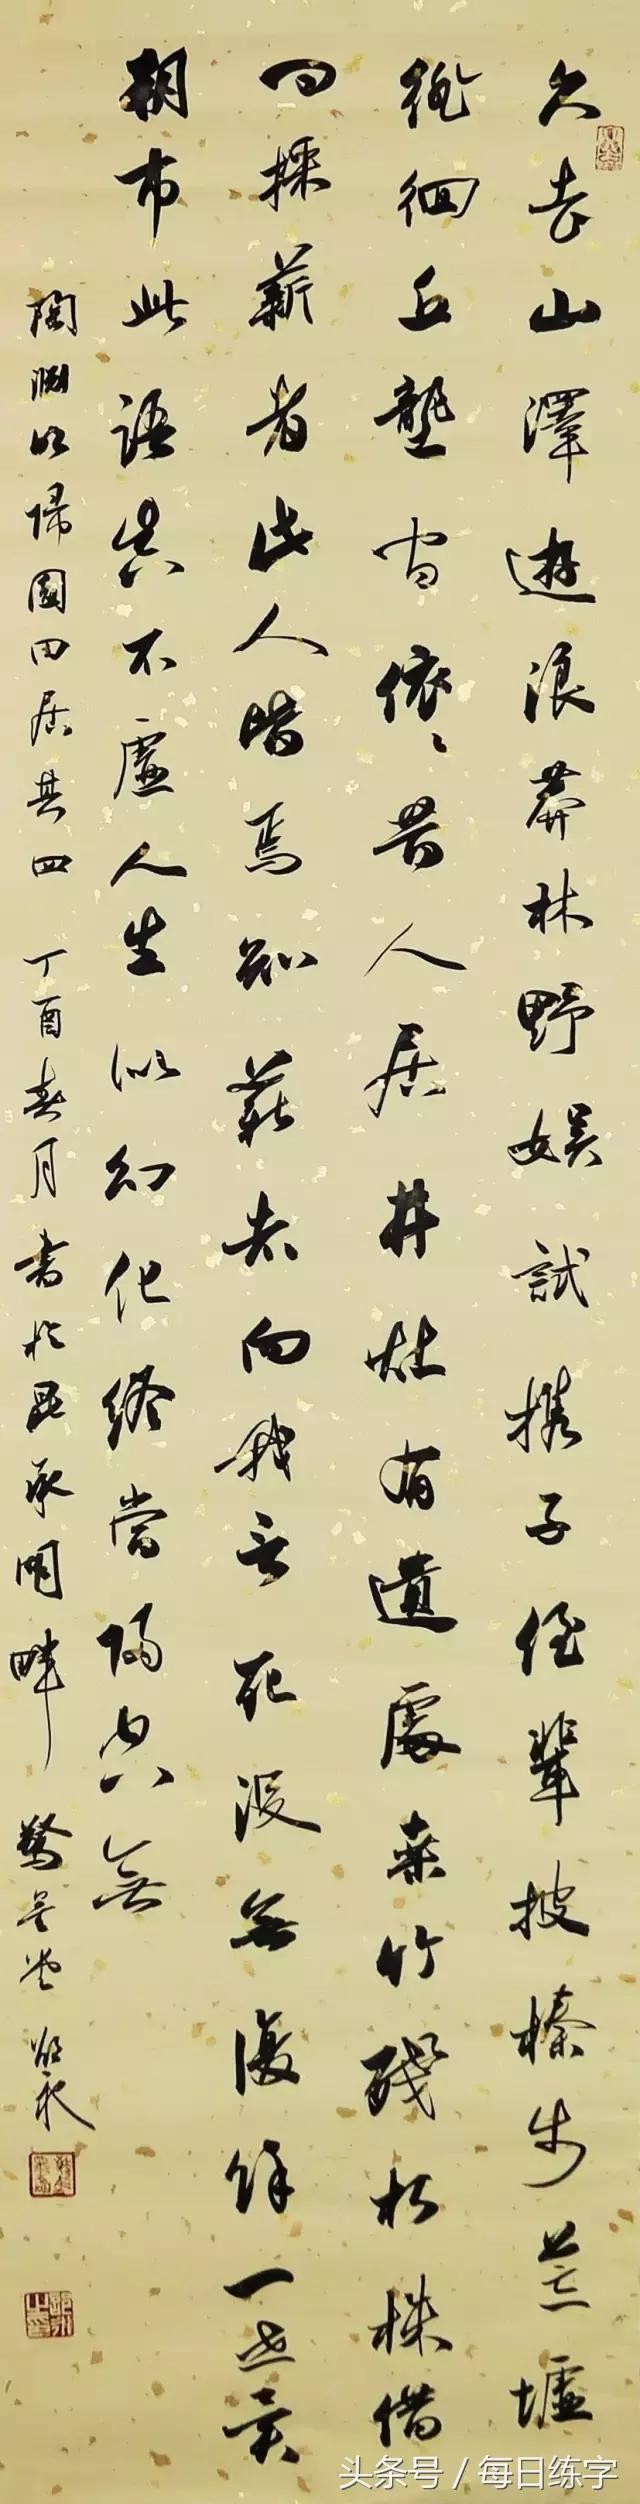 久去山澤遊浪莽林野娱試携子侄輩披榛步荒墟
徘徊丘壟間依〻昔人居井灶有遺處桑竹殘朽株借
問採薪者此人皆焉如薪者向我言死没無復餘一世異
朝市此語真不虛人生似幻化終當歸空無
陶淵明歸園田居其四 丁酉春月書於昆承湖畔
头条号 / 每日练字